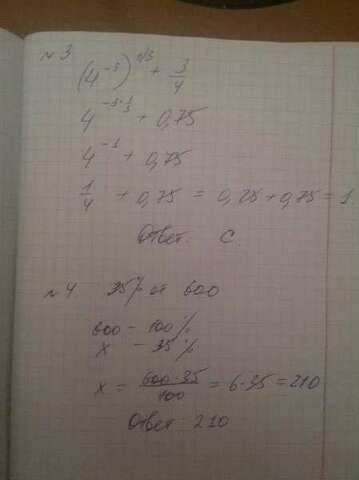 № 3
(4^-3)^1/3 + 3/4
4^-3·1/3 + 0,75
4^-1 + 0,75
1/4 + 0,75 = 0,25 + 0,75 = 1
Ответ. C.
№ 4. 35% от 600
600 – 100%
x – 35%
x = 600·35/100 = 6·35 = 210
Ответ 210